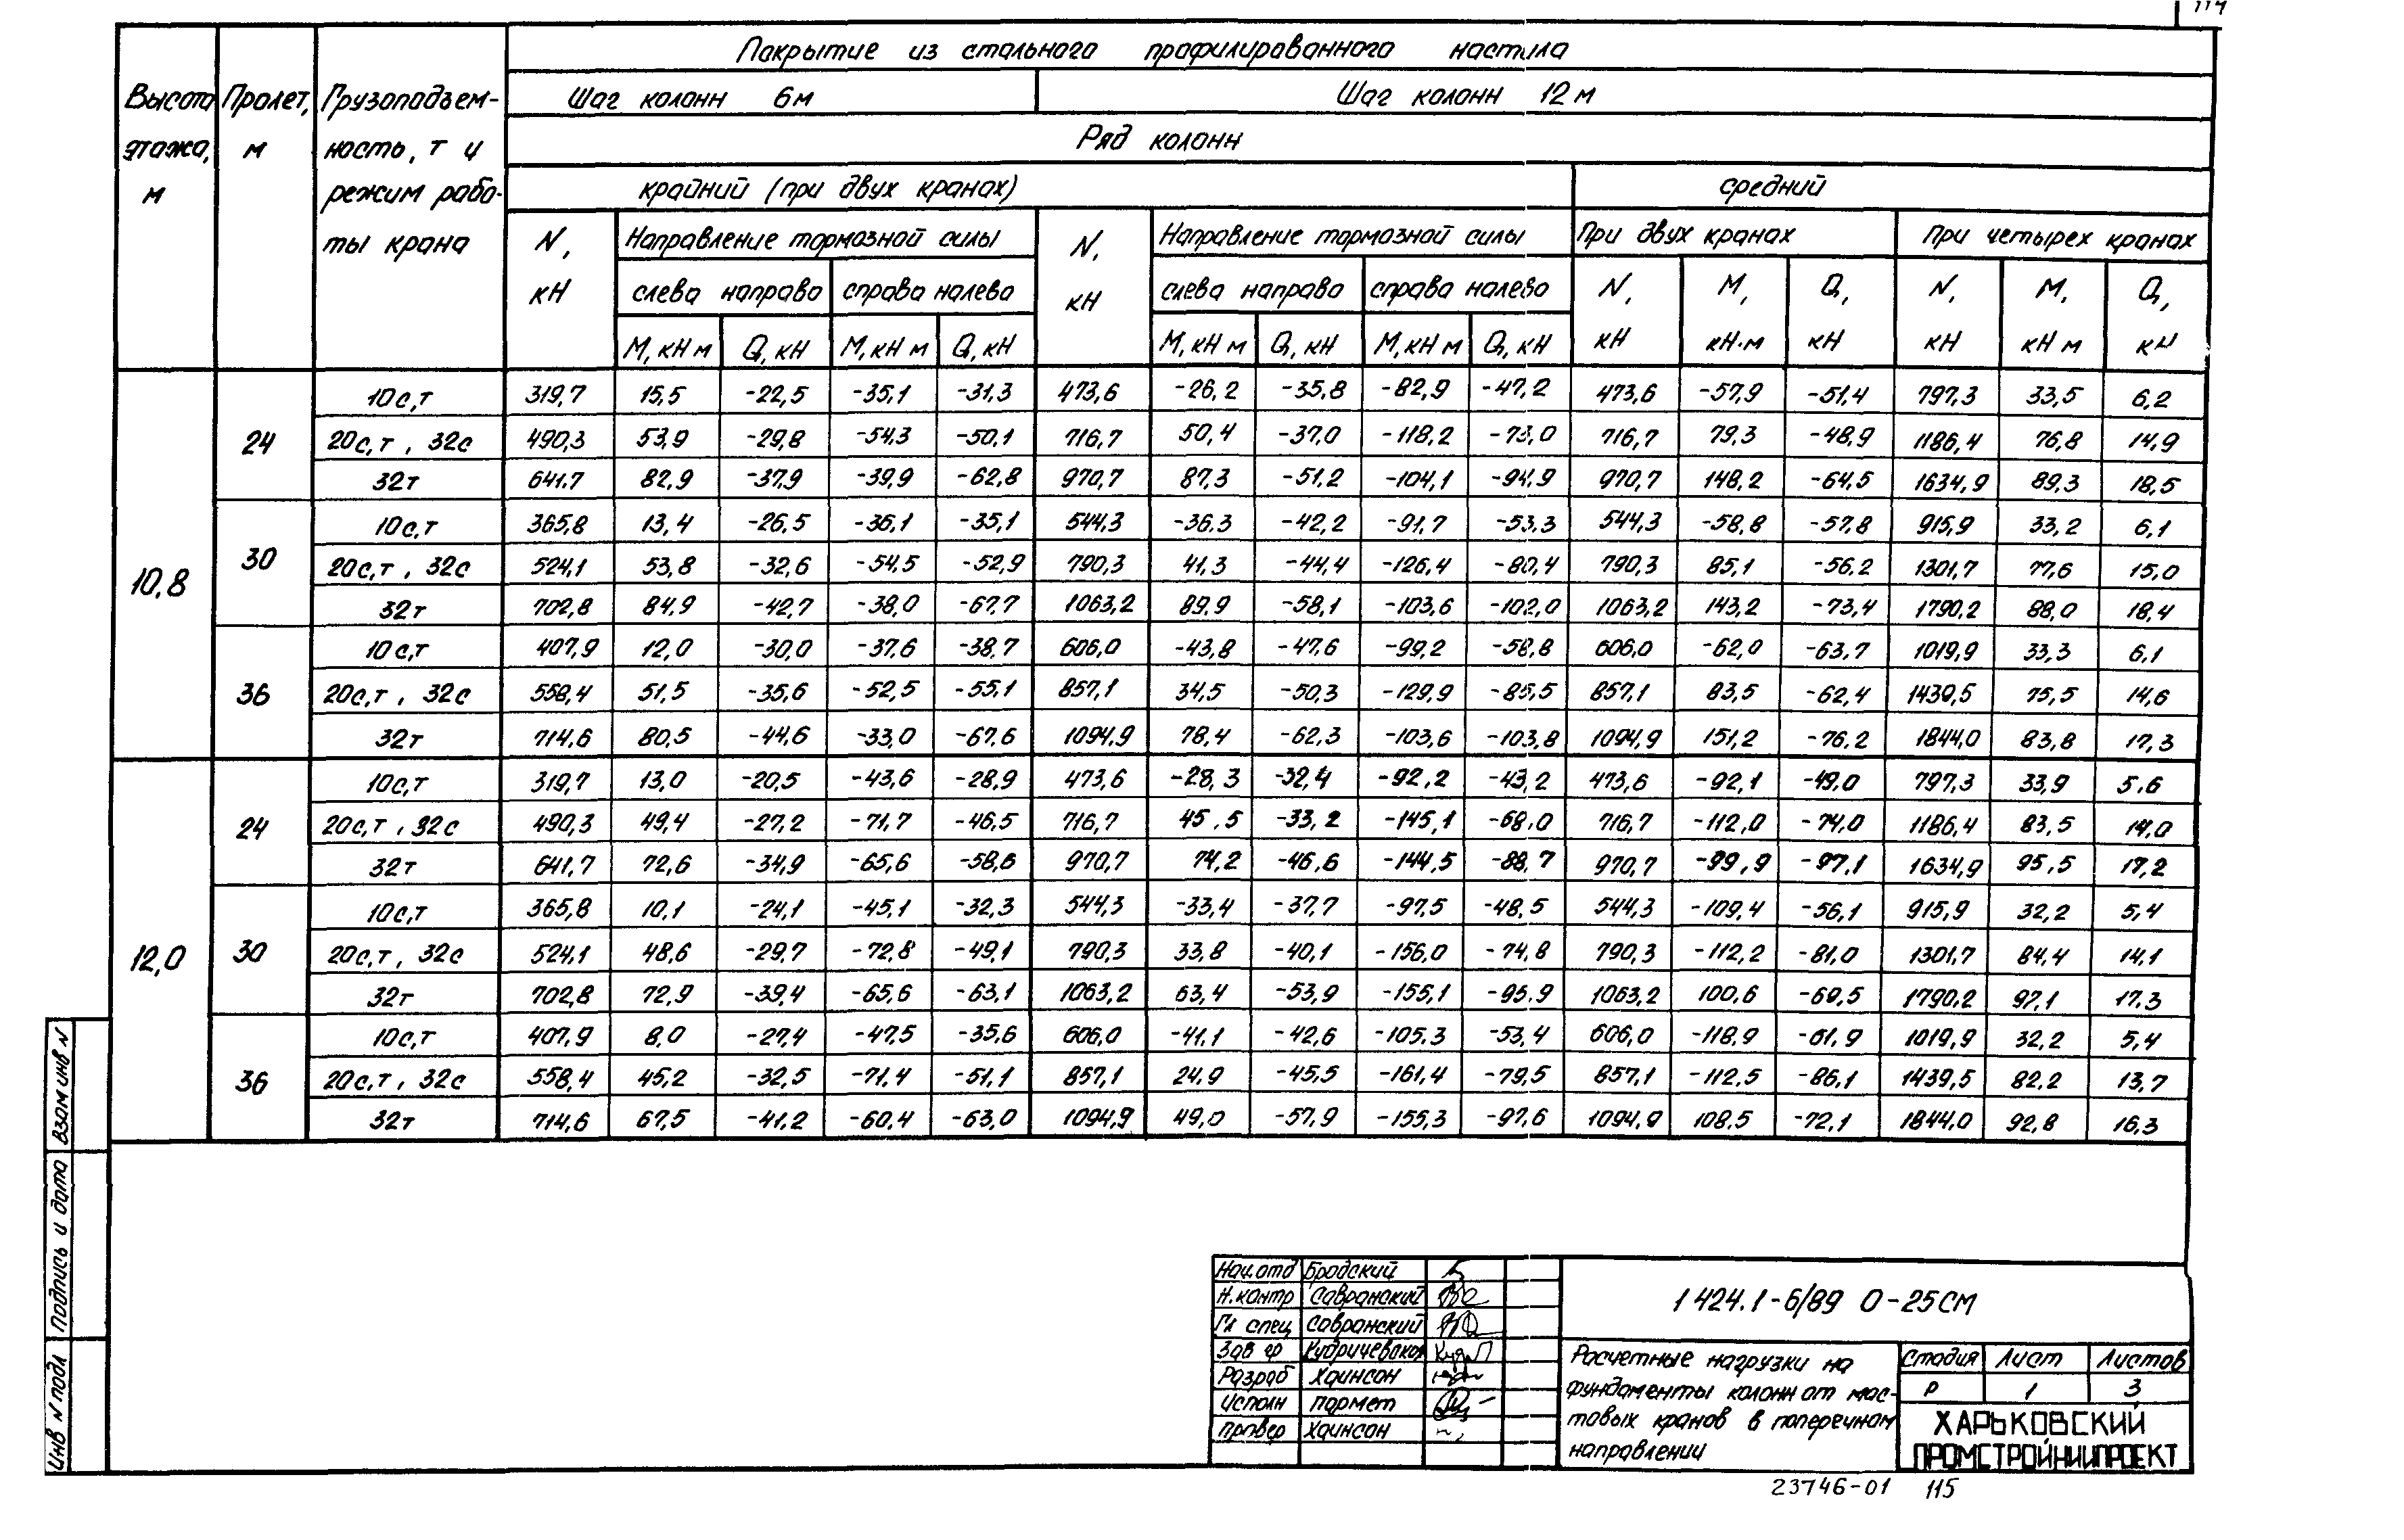 114
Покрытие из стального профилированного настила
Высота этажа, м
Пролет, м
Грузоподъем-
ность, т и
режим рабо-
ты крана
Шаг колонн 6м
Шаг колонн 12м
Ряд колонн
крайний (при двух кранах)
средний
N, кН
Направление тормозной силы
N, кН
Направление тормозной силы
При двух кранах
При четырех кранах
слева направо
справа налево
слева направо
справа налево
N, кН
М, кН·м
Q, кН
N, кН
М, кН м
Q, кН
М, кН м
Q, кН
М, кН м
Q, кН
М, кН м
Q, кН
М, кН м
Q, кН
10,8
24
10с,т 319,7 15,5 -22,5 -35,1 -31,3 473,6 -26,2 -35,8 -82,9 -47,2 473,6 -57,9 -51,4 797,3 33,5 6,2
20с,т, 32с 490,3 53,9 -29,8 -54,3 -50,1 716,7 50,4 -37,0 -118,2 -73,0 716,7 79,3 -48,9 1186,4 76,8 14,9
32т 641,7 82,9 -37,9 -39,9 -62,8 970,7 87,3 -51,2 -104,1 -94,9 970,7 148,2 -64,5 1634,9 89,3 18,5
30
10с,т 365,8 13,4 -26,5 -36,1 -35,1 544,3 -36,3 -42,2 -91,7 -53,3 544,3 -58,8 -57,8 915,9 33,2 6,1
20с,т, 32с 524,1 53,8 -32,6 -54,5 -52,9 790,3 41,3 -44,4 -126,4 -80,4 790,3 85,1 -56,2 1301,7 77,6 15,0
32т 702,8 84,9 -42,7 -38,0 -67,7 1063,2 89,9 -58,1 -103,6 -102,0 1063,2 143,2 -73,4 1790,2 88,0 18,4
36
10с,т 407,9 12,0 -30,0 -37,6 -38,7 606,0 -43,8 -47,6 -99,2 -58,8 606,0 -62,0 -63,7 1019,9 33,3 6,1
20с,т, 32с 558,4 51,5 -35,6 -52,5 -55,1 857,1 34,5 -50,3 -129,9 -85,5 857,1 83,5 -62,4 1439,5 75,5 14,6
32т 714,6 80,5 -44,6 -33,0 -67,6 1094,9 78,4 -62,3 -103,6 -103,8 1094,9 151,2 -76,2 1844,0 83,8 17,3
12,0
24
10с,т 319,7 13,0 -20,5 -43,6 -28,9 473,6 -28,3 -32,4 -92,2 -43,2 473,6 -92,1 -49,0 797,3 33,9 5,6
20с,т, 32с 490,3 49,4 -27,2 -71,7 -46,5 716,7 45,5 -33,2 -145,1 -68,0 716,7 -112,0 -74,0 1186,4 83,5 14,0
32т 641,7 72,6 -34,9 -65,6 -58,6 970,7 74,2 -46,6 -144,5 -88,7 970,7 -99,9 -97,1 1634,9 95,5 17,2
30
10с,т 365,8 10,1 -24,1 -45,1 -32,3 544,3 -33,4 -37,7 -97,5 -48,5 544,3 -109,4 -56,1 915,9 32,2 5,4
20с,т, 32с 524,1 48,6 -29,7 -72,8 -49,1 790,3 33,8 -40,1 -156,0 -74,8 790,3 -112,2 -81,0 1301,7 84,4 14,1
32т 702,8 72,9 -39,4 -65,6 -63,1 1063,2 63,4 -53,9 -155,1 -95,9 1063,2 100,6 -69,5 1790,2 97,1 17,3
36
10с,т 407,9 8,0 -27,4 -47,5 -35,6 606,0 -41,1 -42,6 -105,3 -53,4 606,0 -118,9 -61,9 1019,9 32,2 5,4
20с,т, 32с 558,4 45,2 -32,5 -71,4 -51,1 857,1 24,9 -45,5 -161,4 -79,5 857,1 -112,5 -86,1 1439,5 82,2 13,7
32т 714,6 67,5 -41,2 -60,4 -63,0 1094,9 49,0 -57,9 -155,3 -97,6 1094,9 108,5 -72,1 1844,0 92,8 16,3
Взам инв N
Подпись и дата
Инв N подл
Нач.отд Бродский
Н.контр Савранский
Гл спец Савранский
Зав гр
Разраб Хаинсон
Исполн Пармет
Провер Хаинсон
1 424.1-6/89 0-25СМ
Расчетные нагрузки на
фундаменты колонн от мос-
товых кранов в поперечном
направлении
Стадия Лист Листов
Р 1 3
ХАРЬКОВСКИЙ
ПРОМСТРОЙНИИПРОЕКТ
23746-01 115